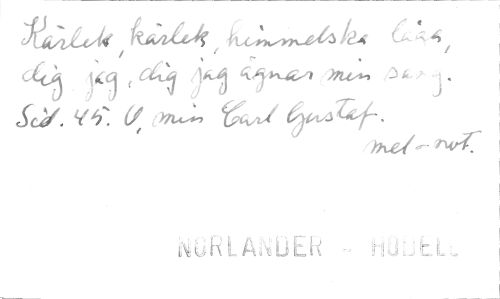 Kärlek, kärlek, himmelska låga,
dig jag, dig jag ägnar min sång.
Sid. 45. O, min Carl Gustaf.
mel-not.
NORLANDER - HODELL